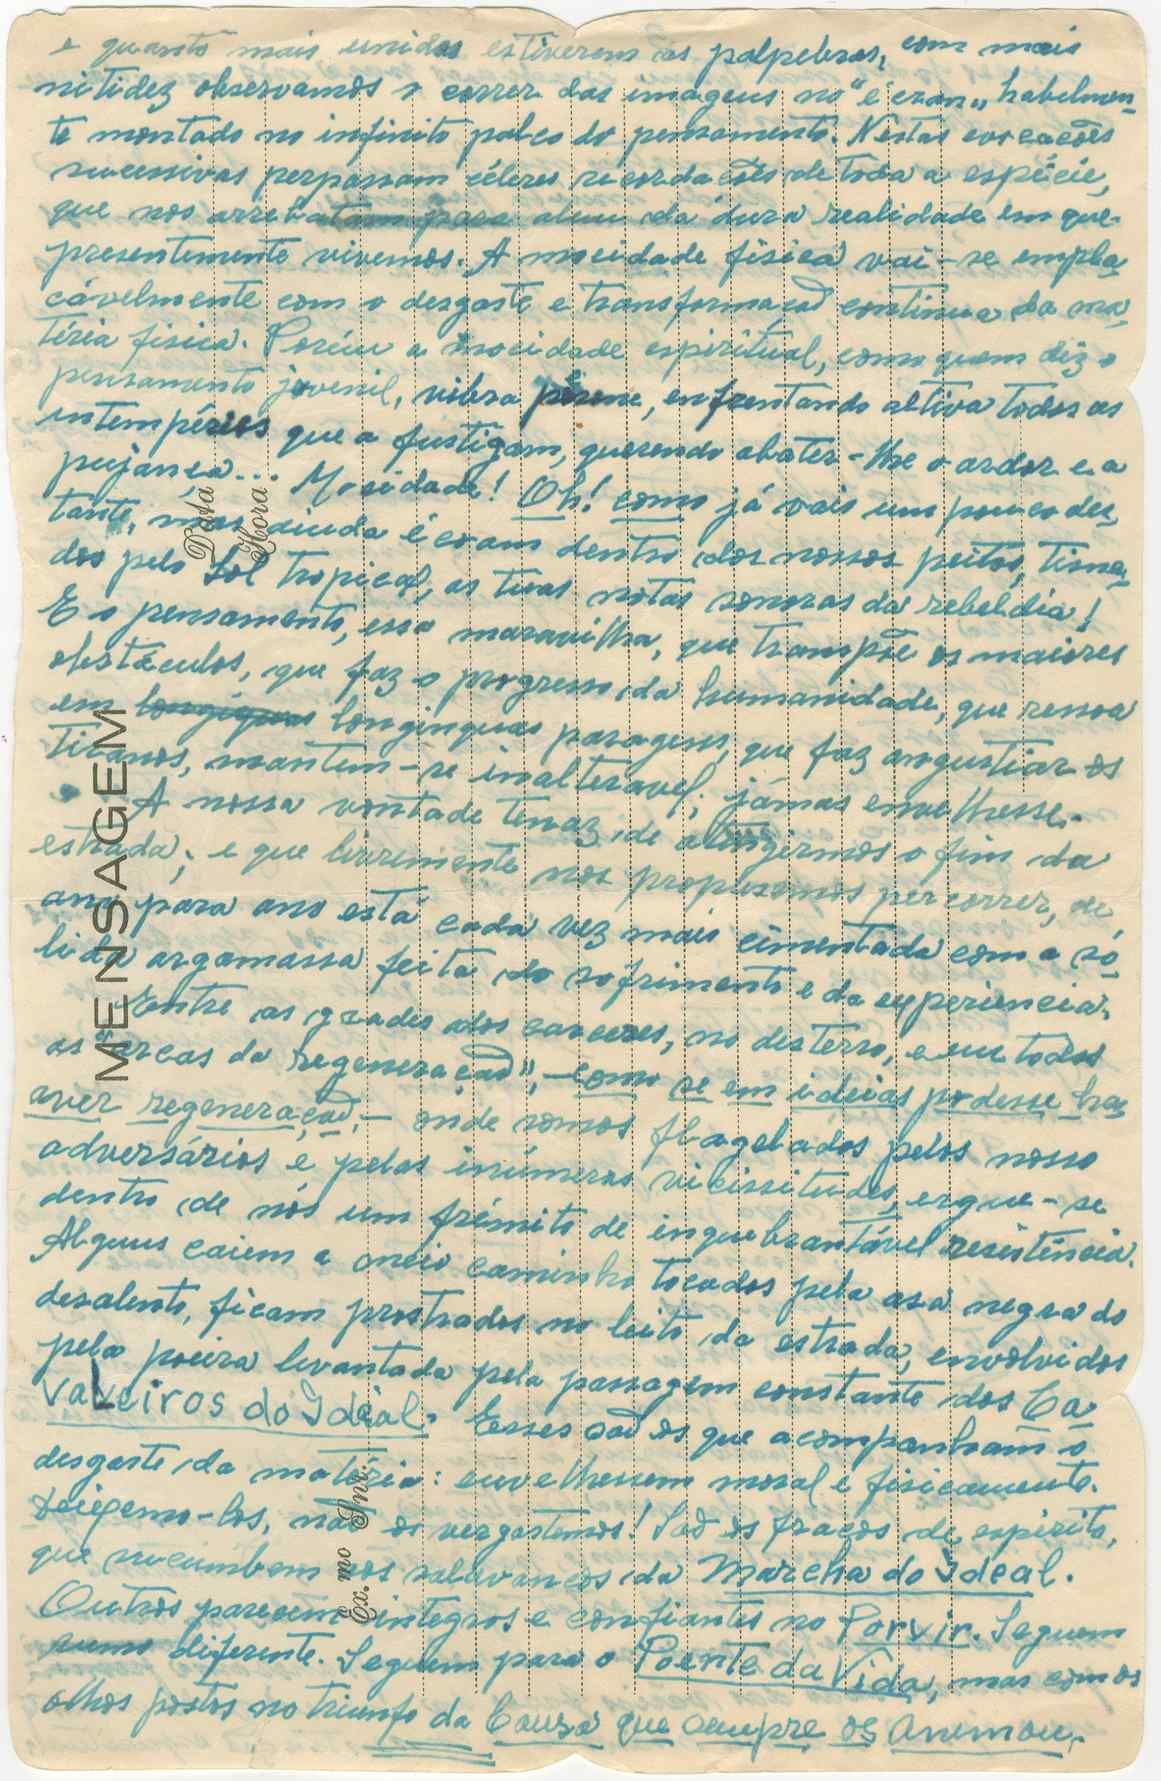 e quanto mais unidas estiverem as palpebras, com mais
nitidez observamos o correr das imagens no "écran" habelmen-
te montado no infinito palco do pensamento. Nestas evocações
sucessivas perpassam céleres recordações de toda a espécie,
que nos arrebatam para alem da dura realidade em que
presentemente vivemos. A mocidade fisica vai-se empla-
cávelmente com o desgaste e transformação continua da ma-
téria fisica. Porém a mocidade espiritual, como quem diz o
pensamento juvenil, vibra perene, enfrentando altiva todas as
intempéries que a fustigam, querendo abater-lhe o ardor e a
pujança... Mocidade! Oh! como já vais um pouco des-
tante, mas ainda écoam dentro dos nossos peitos, tisna-
dos pelo Sol tropical, as tuas notas sonoras da rebeldia!
E o pensamento, essa maravilha, que transpõe os maiores
obstáculos, que faz o progresso da humanidade, que ressoa
em longiquas longinquas paragens, que faz angustiar os
tiranos, mantem-se inalteravel; jámas envelhesse.
A nossa vontade tenaz de atingirmos o fim da
estrada; e que livremente nos propusemos percorrer, de
ano para ano está cada vez mais cimentada com a só-
lida argamassa feita do sofrimento e da experiencia.
Entre as grades dos carceres, no desterro, e em todas
as "cercas da regeneração", - como se em ideias podesse ha-
aver regeneração, - onde somos flagelados pelos nosso
adversários e pelas inúmeras vicissitudes, ergue-se
dentro de nós um frémito de inquebrantável resistência.
Alguns caiem a meio caminho tocados pela asa negra do
desalento, ficam prostrados no leito da estrada, envolvidos
pela poeira levantada pela passagem constante dos Ca-
valeiros do Ideal. Esses são os que acompanham o
desgaste da matéria: envelhessem moral e fisicamente.
Deixemo-los, não os vergastemos! São os fracos de espirito,
que sucumbem aos solavancos da Marcha do Ideal.
Outros parecem integros e confiantes no Porvir. Seguem
rumo diferente. Seguem para o Poente da Vida, mas com os
olhos postos no triunfo da Causa que sempre os animou.
MENSAGEM
Data
Hora
Ex.mo Snr.